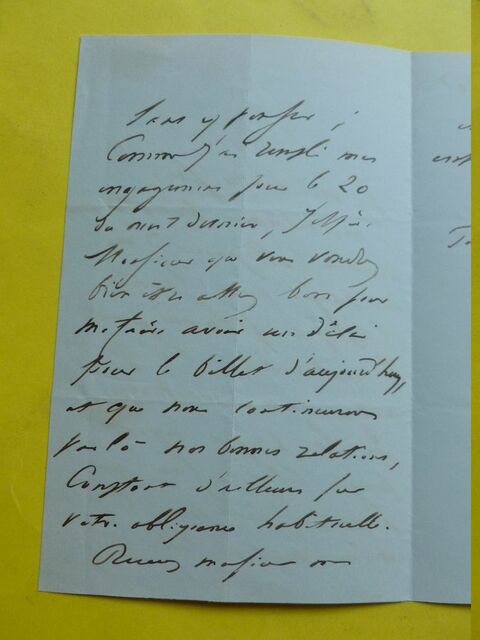 sans y penser ;
Comme j'ai rempli mes
engagements pour le 20
du mois dernier, J'espère
Monsieur que vous voudrez
bien être assez bon pour
me faire avoir un délai
pour le billet d'aujourd'huy,
et que nous continuerons
par là nos bonnes relations,
Comptant d'ailleurs sur
votre obligeance habituelle.
Recevez monsieur